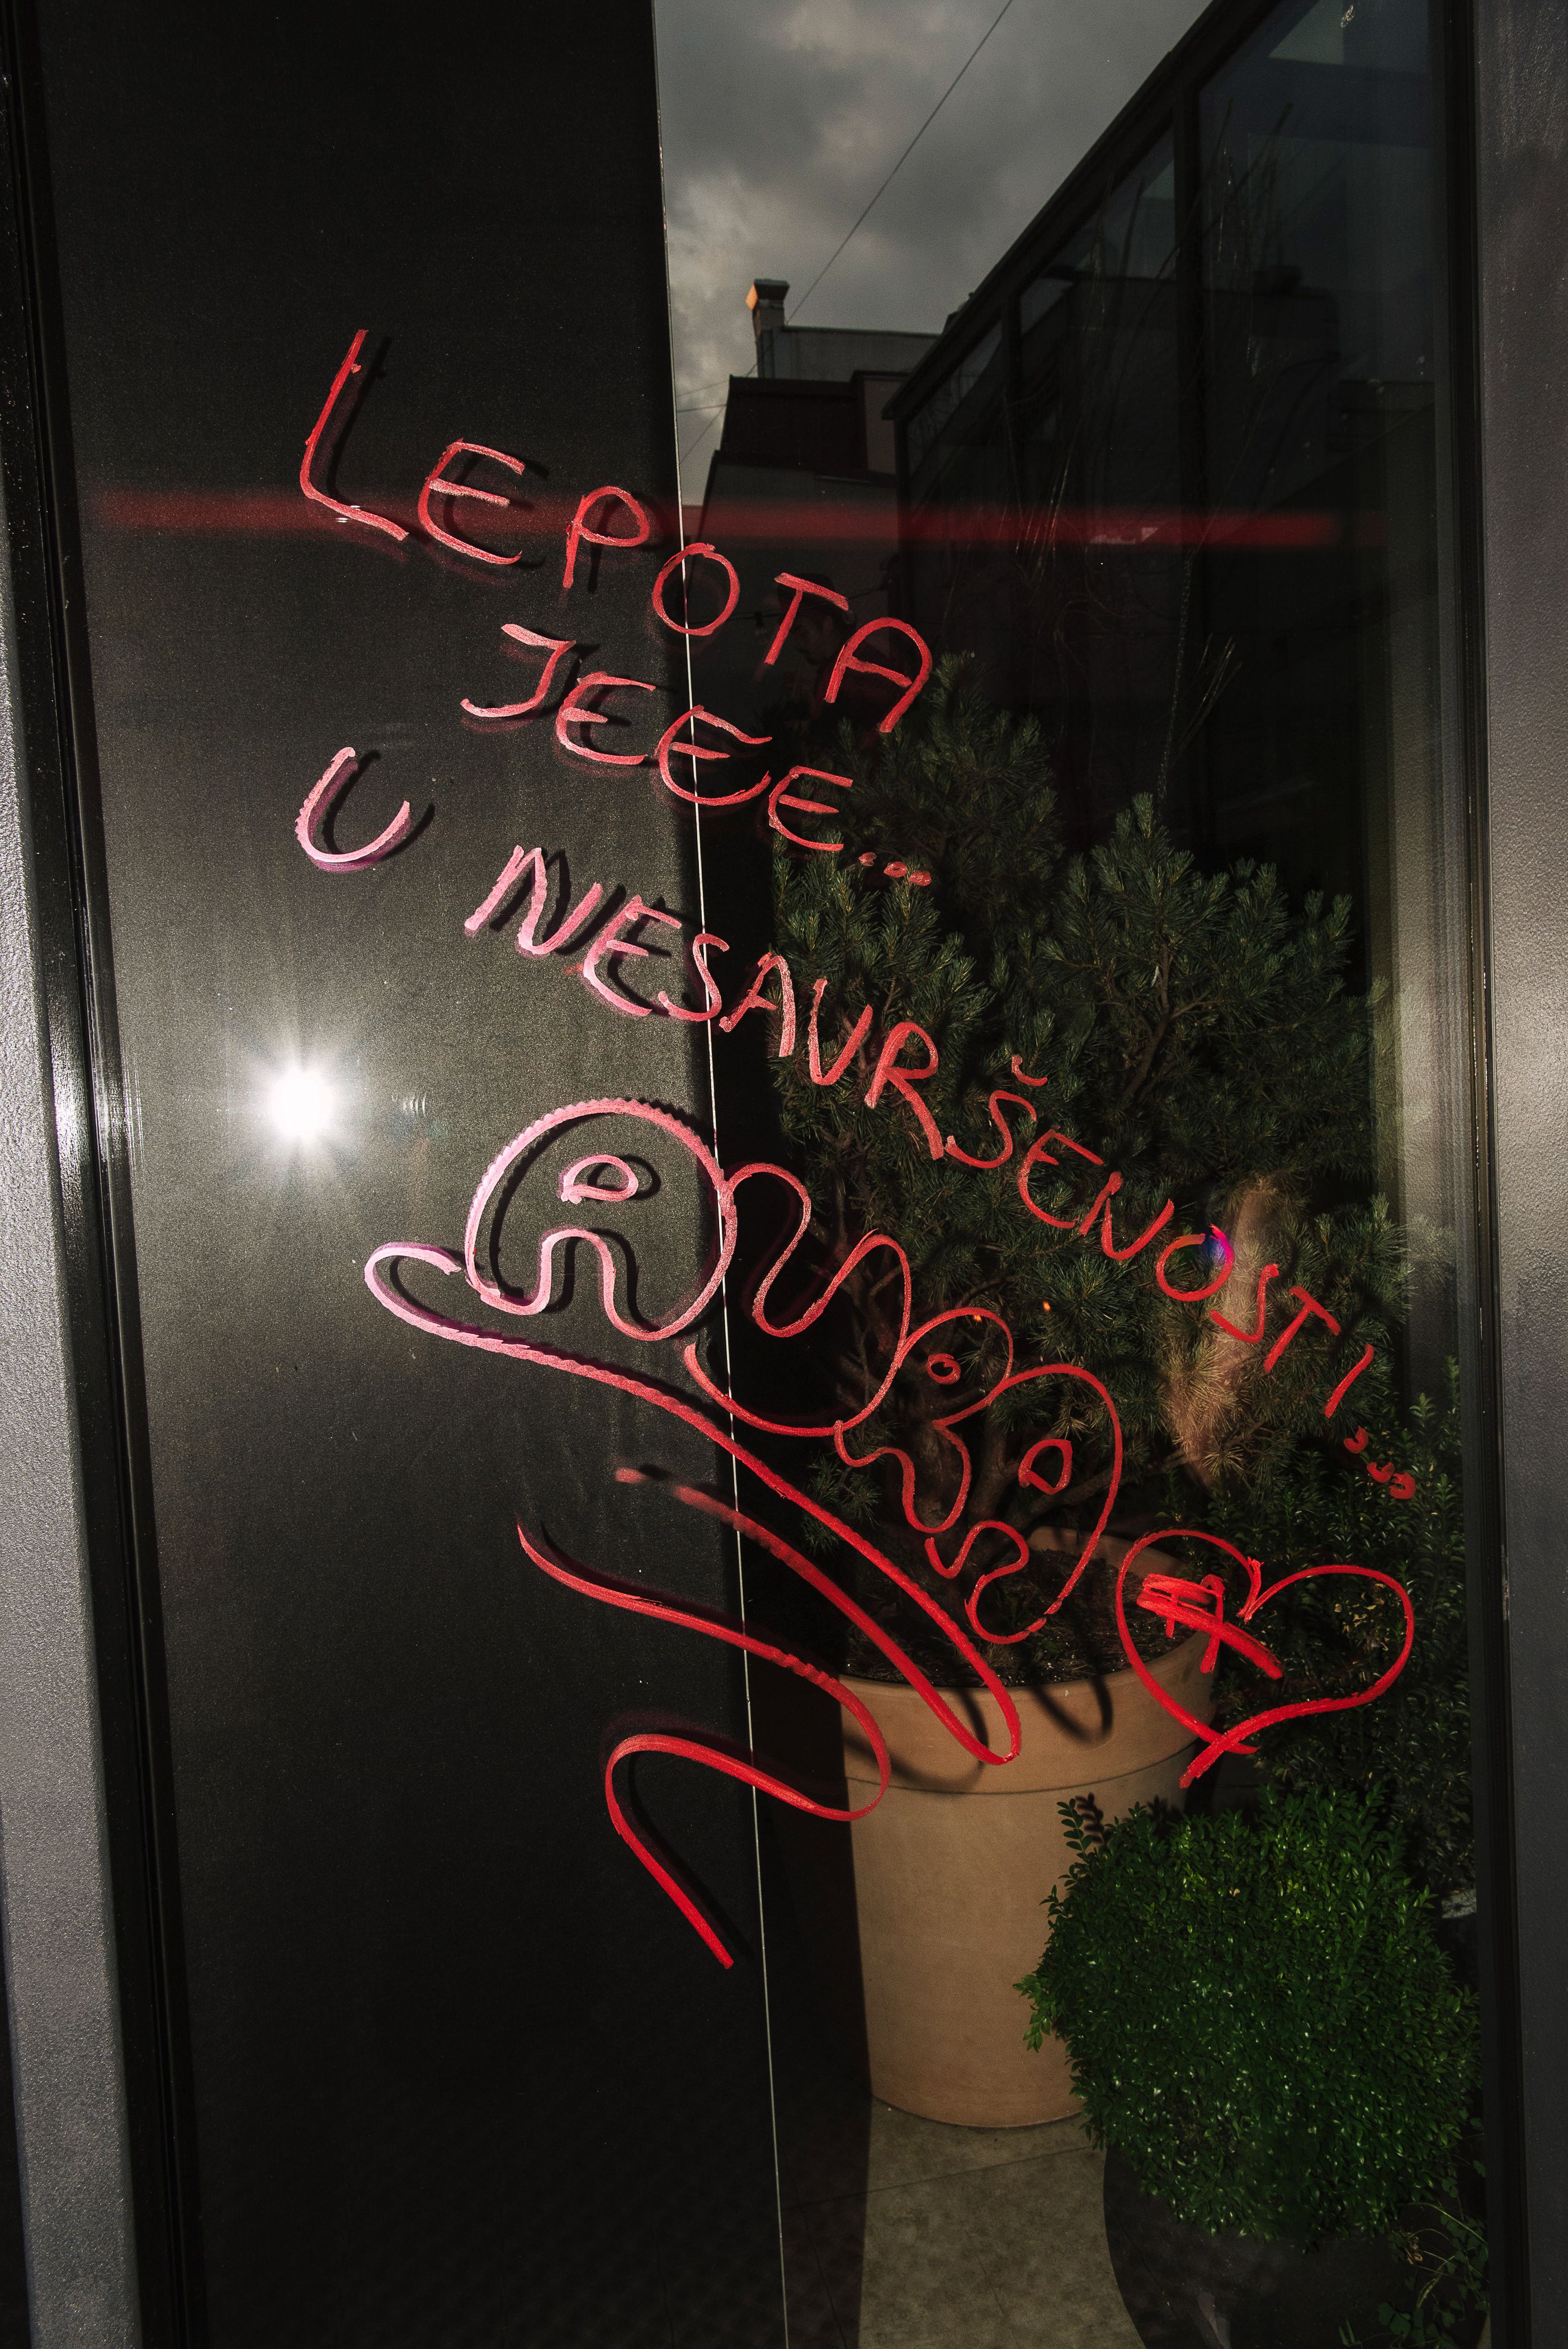 LEPOTA
JEEE...
U NESAVRŠENOSTI...